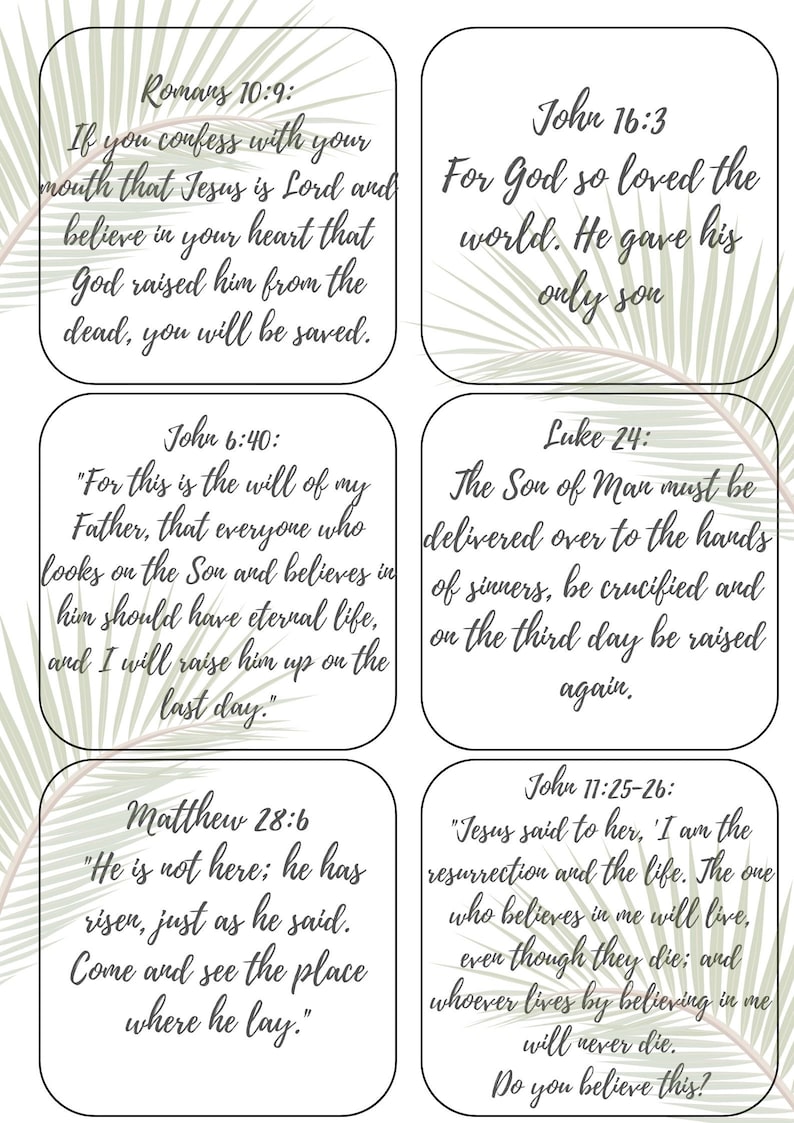 Romans 10:9:
If you confess with your
mouth that Jesus is Lord and
believe in your heart that
God raised him from the
dead, you will be saved.
John 16:3
For God so loved the
world. He gave his
only son
John 6:40:
"For this is the will of my
Father, that everyone who
looks on the Son and believes in
him should have eternal life,
and I will raise him up on the
last day."
Luke 24:
The Son of Man must be
delivered over to the hands
of sinners, be crucified and
on the third day be raised
again.
Matthew 28:6
"He is not here; he has
risen, just as he said.
Come and see the place
where he lay."
John 11:25-26:
"Jesus said to her, 'I am the
resurrection and the life. The one
who believes in me will live,
even though they die; and
whoever lives by believing in me
will never die.
Do you believe this?